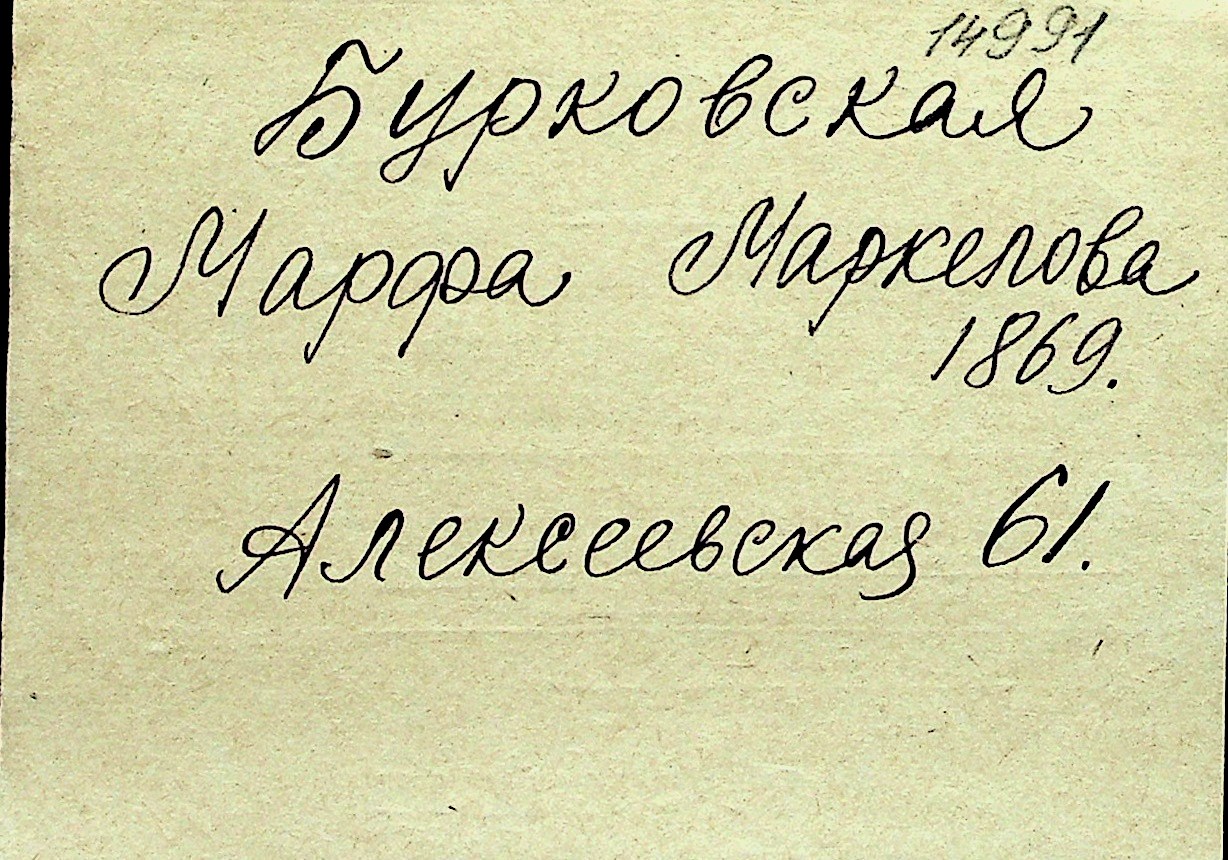 14991
Бурковская
Марфа Маркелова
1869.
Алексеевская 61.